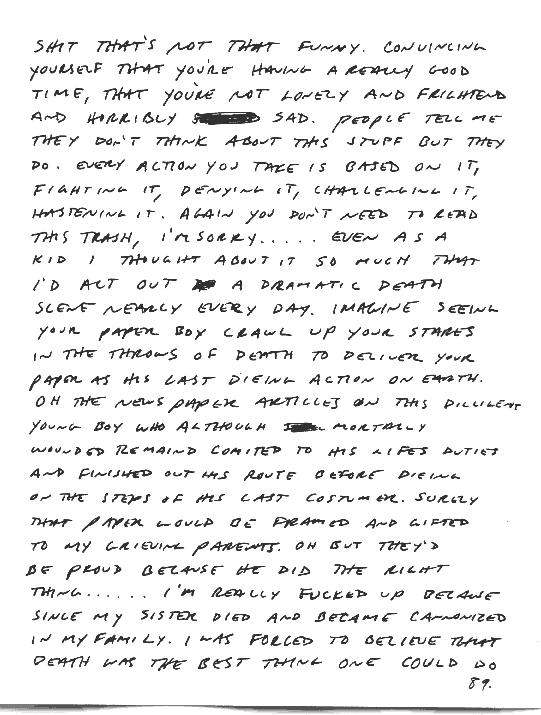 SHIT THAT'S NOT THAT FUNNY. CONVINCING
YOURSELF THAT YOU'RE HAVING A REALLY GOOD
TIME, THAT YOU'RE NOT LONELY AND FRIGHTEND
AND HORRIBLY SAD. PEOPLE TELL ME
THEY DON'T THINK ABOUT THIS STUFF BUT THEY
DO. EVERY ACTION YOU TAKE IS BASED ON IT,
FIGHTING IT, DENYING IT, CHALLENGING IT,
HASTENING IT. AGAIN YOU DON'T NEED TO READ
THIS TRASH, I'M SORRY..... EVEN AS A
KID I THOUGHT ABOUT IT SO MUCH THAT
I'D ACT OUT A DRAMATIC DEATH
SCENE NEARLY EVERY DAY. IMAGINE SEEING
YOUR PAPER BOY CRAWL UP YOUR STARES
IN THE THROWS OF DEATH TO DELIVER YOUR
PAPER AS HIS LAST DIEING ACTION ON EARTH.
OH THE NEWS PAPER ARTICLES ON THIS DILLIGENT
YOUNG BOY WHO ALTHOUGH MORTALLY
WOUNDED REMAIND COMITED TO HIS LIFES DUTIES
AND FINISHED OUT HIS ROUTE BEFORE DIEING
ON THE STEPS OF HIS LAST COSTUMER. SURELY
THAT PAPER WOULD BE FRAMED AND GIFTED
TO MY GRIEVING PARENTS. OH BUT THEY'D
BE PROUD BECAUSE HE DID THE RIGHT
THING...... I'M REALLY FUCKED UP BECAUSE
SINCE MY SISTER DIED AND BECAME CANNONIZED
IN MY FAMILY. I WAS FORCED TO BELIEVE THAT
DEATH WAS THE BEST THING ONE COULD DO
89.